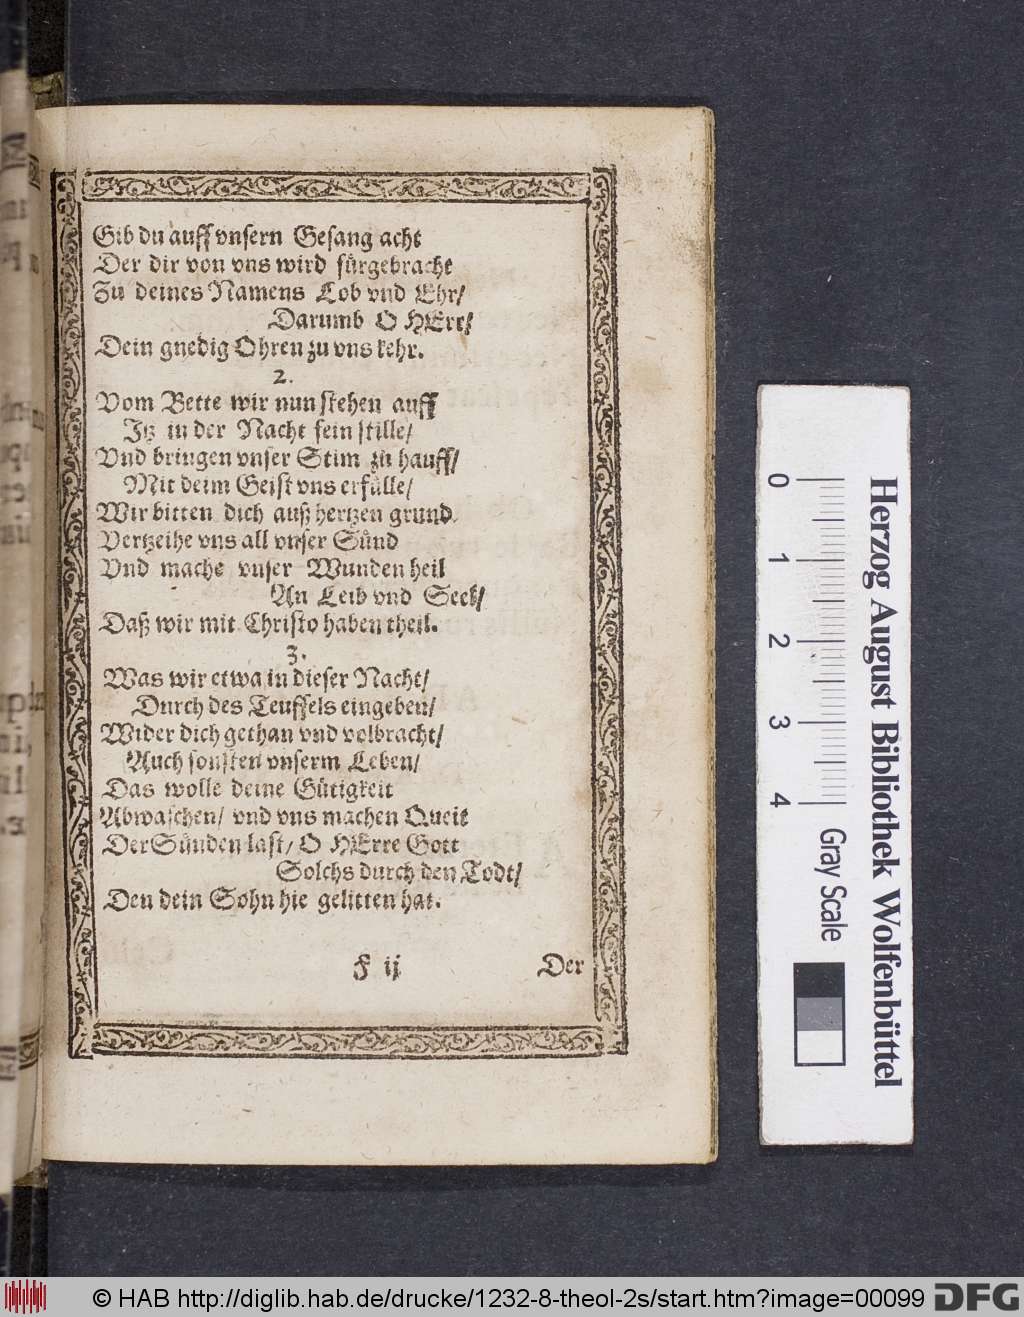 Gib du auff vnsern Gesang acht
Der dir von vns wird fürgebracht
Zu deines Namens Lob vnd Ehr/
Darumb O HErr/
Dein gnedig Ohren zu vns kehr.
2.
Vom Bette wir nun stehen auff
Itz in der Nacht fein stille/
Vnd bringen vnser Stim zu hauff/
Mit deim Geist vns erfülle/
Wir bitten dich auß hertzen grund
Vertzeihe vns all vnser Sünd
Vnd mache vnser Wunden heil
An Leib vnd Seel/
Daß wir mit Christo haben theil.
3.
Was wir etwa in dieser Nacht/
Durch des Teuffels eingeben/
Wider dich gethan vnd volbracht/
Auch sonsten vnserm Leben/
Das wolle deine Gütigkeit
Abwaschen/ vnd vns machen Queit
Der Sünden last/ O HErre Gott
Solchs durch den Todt/
Den dein Sohn hie gelitten hat.
F ij
Der
Herzog August Bibliothek Wolfenbüttel
0 1 2 3 4
Gray Scale
© HAB http://diglib.hab.de/drucke/1232-8-theol-2s/start.htm?image=00099
DFG